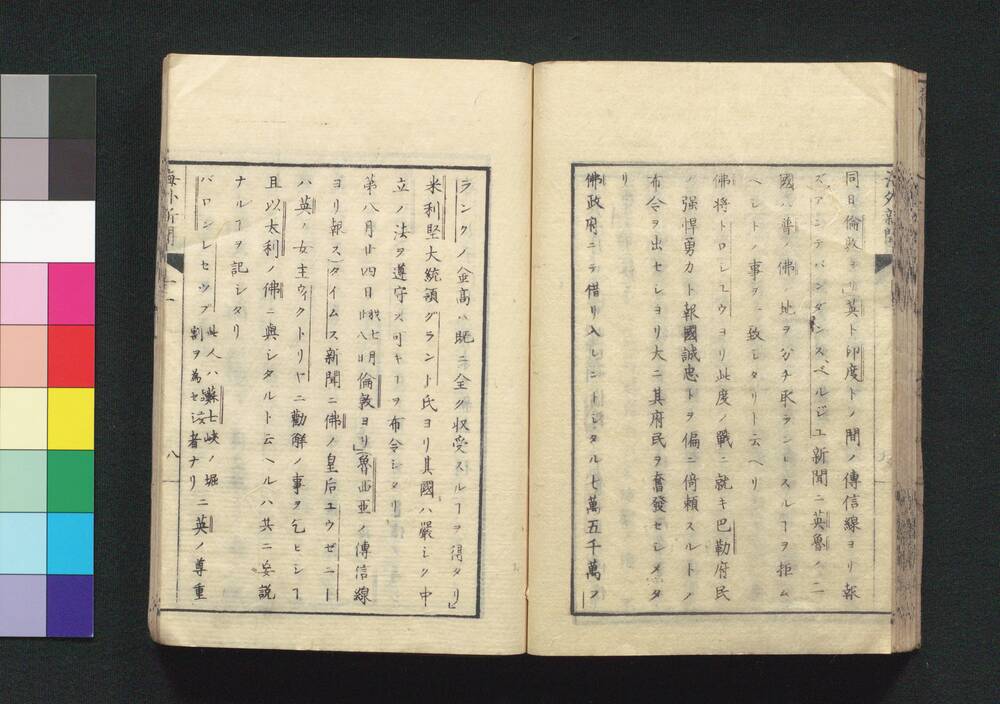 同日倫敦ヨリ英ト印度トノ間ノ傳信線ヨリ報
ズアンデパンダンスベルジユ新聞ニ英魯ノ二
國ハ普ノ佛ノ地ヲ分チ取ラントスルヿヲ拒ム
ヘシトノ事ヲ一致シタリト云ヘリ
佛將トロシユウヨリ此度ノ戰ニ就キ巴勒府民
ノ强悍勇力ト報國誠忠トヲ偏ニ倚頼スルトノ
布令ヲ出セシヨリ大ニ其府民ヲ奮發セシメタ
リ
佛政府ニテ借リ入レントシタル七萬五千萬フ
ランクノ金高ハ既ニ全ク収受スルヿヲ得タリ
米利堅大統領グラント氏ヨリ其國ハ嚴シク中
立ノ法ヲ遵守ス可キヿヲ布令シタリ
第八月廿四日我七月廿八日倫敦ヨリ魯西亜ノ傳信線
ヨリ報スタイムス新聞ニ佛ノ皇后ユウゼニー
ハ英ノ女主ウィクトリヤニ勸解ノ事ヲ乞ヒシヿ
且以太利ノ佛ニ與シタルト云ヘルハ共ニ妄説
ナルヿヲ記シタリ
バロンレセップ此人ハ蘇士峽ノ堀割ヲ為セシ者ナリニ英ノ尊重
海外新聞
八